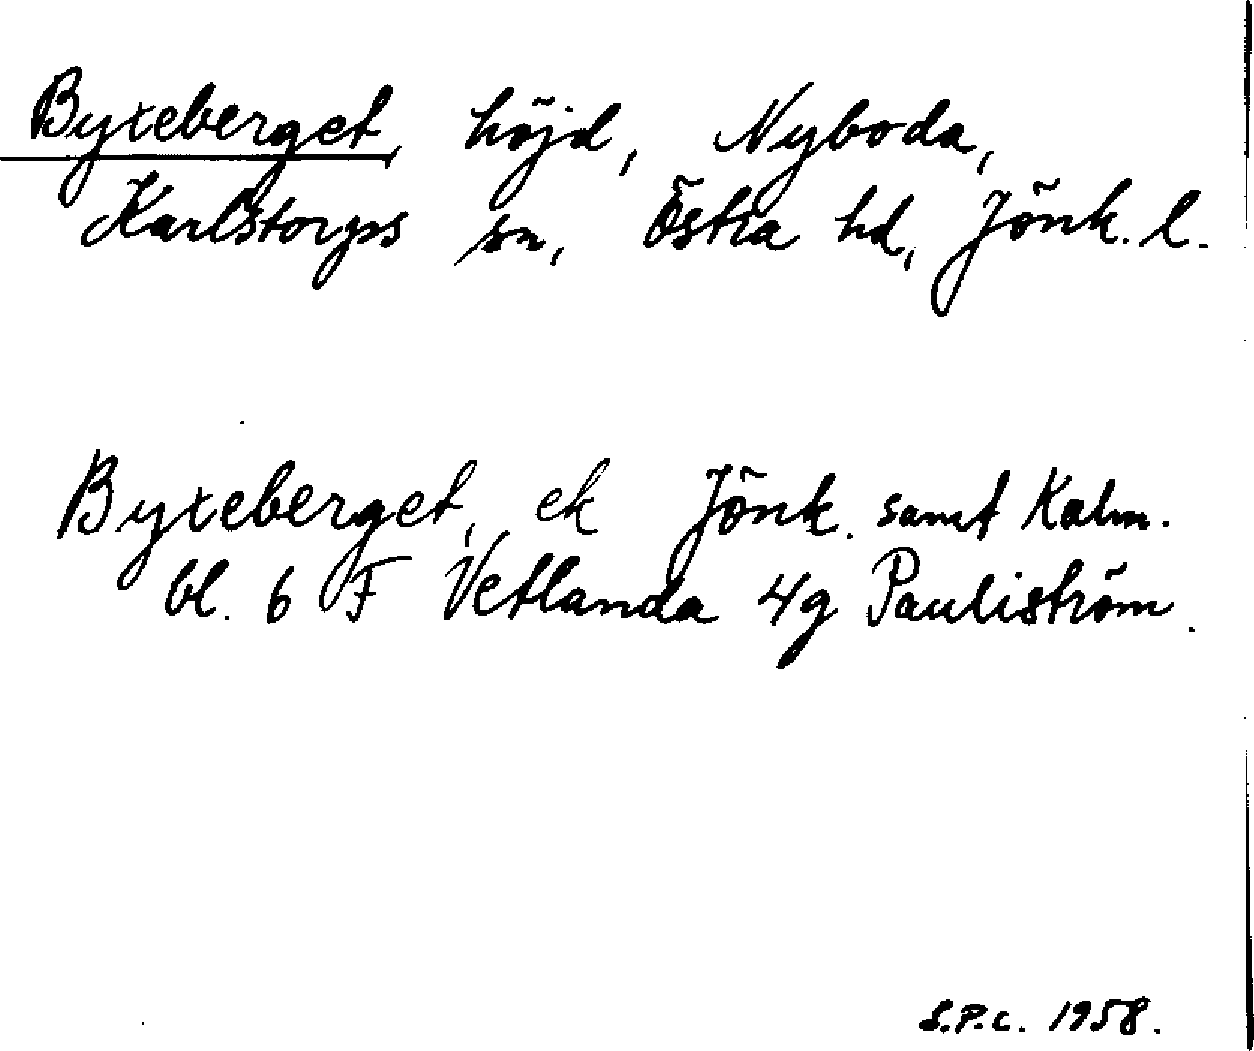 Byxeberget, höjd, Nyboda,
Karlstorps sn, Östra hd, Jönk. l.
Byxeberget, ek Jönk. samt Kalm.
bl. 6 F Vetlanda 4g Pauliström.
S.P.C. 1958.